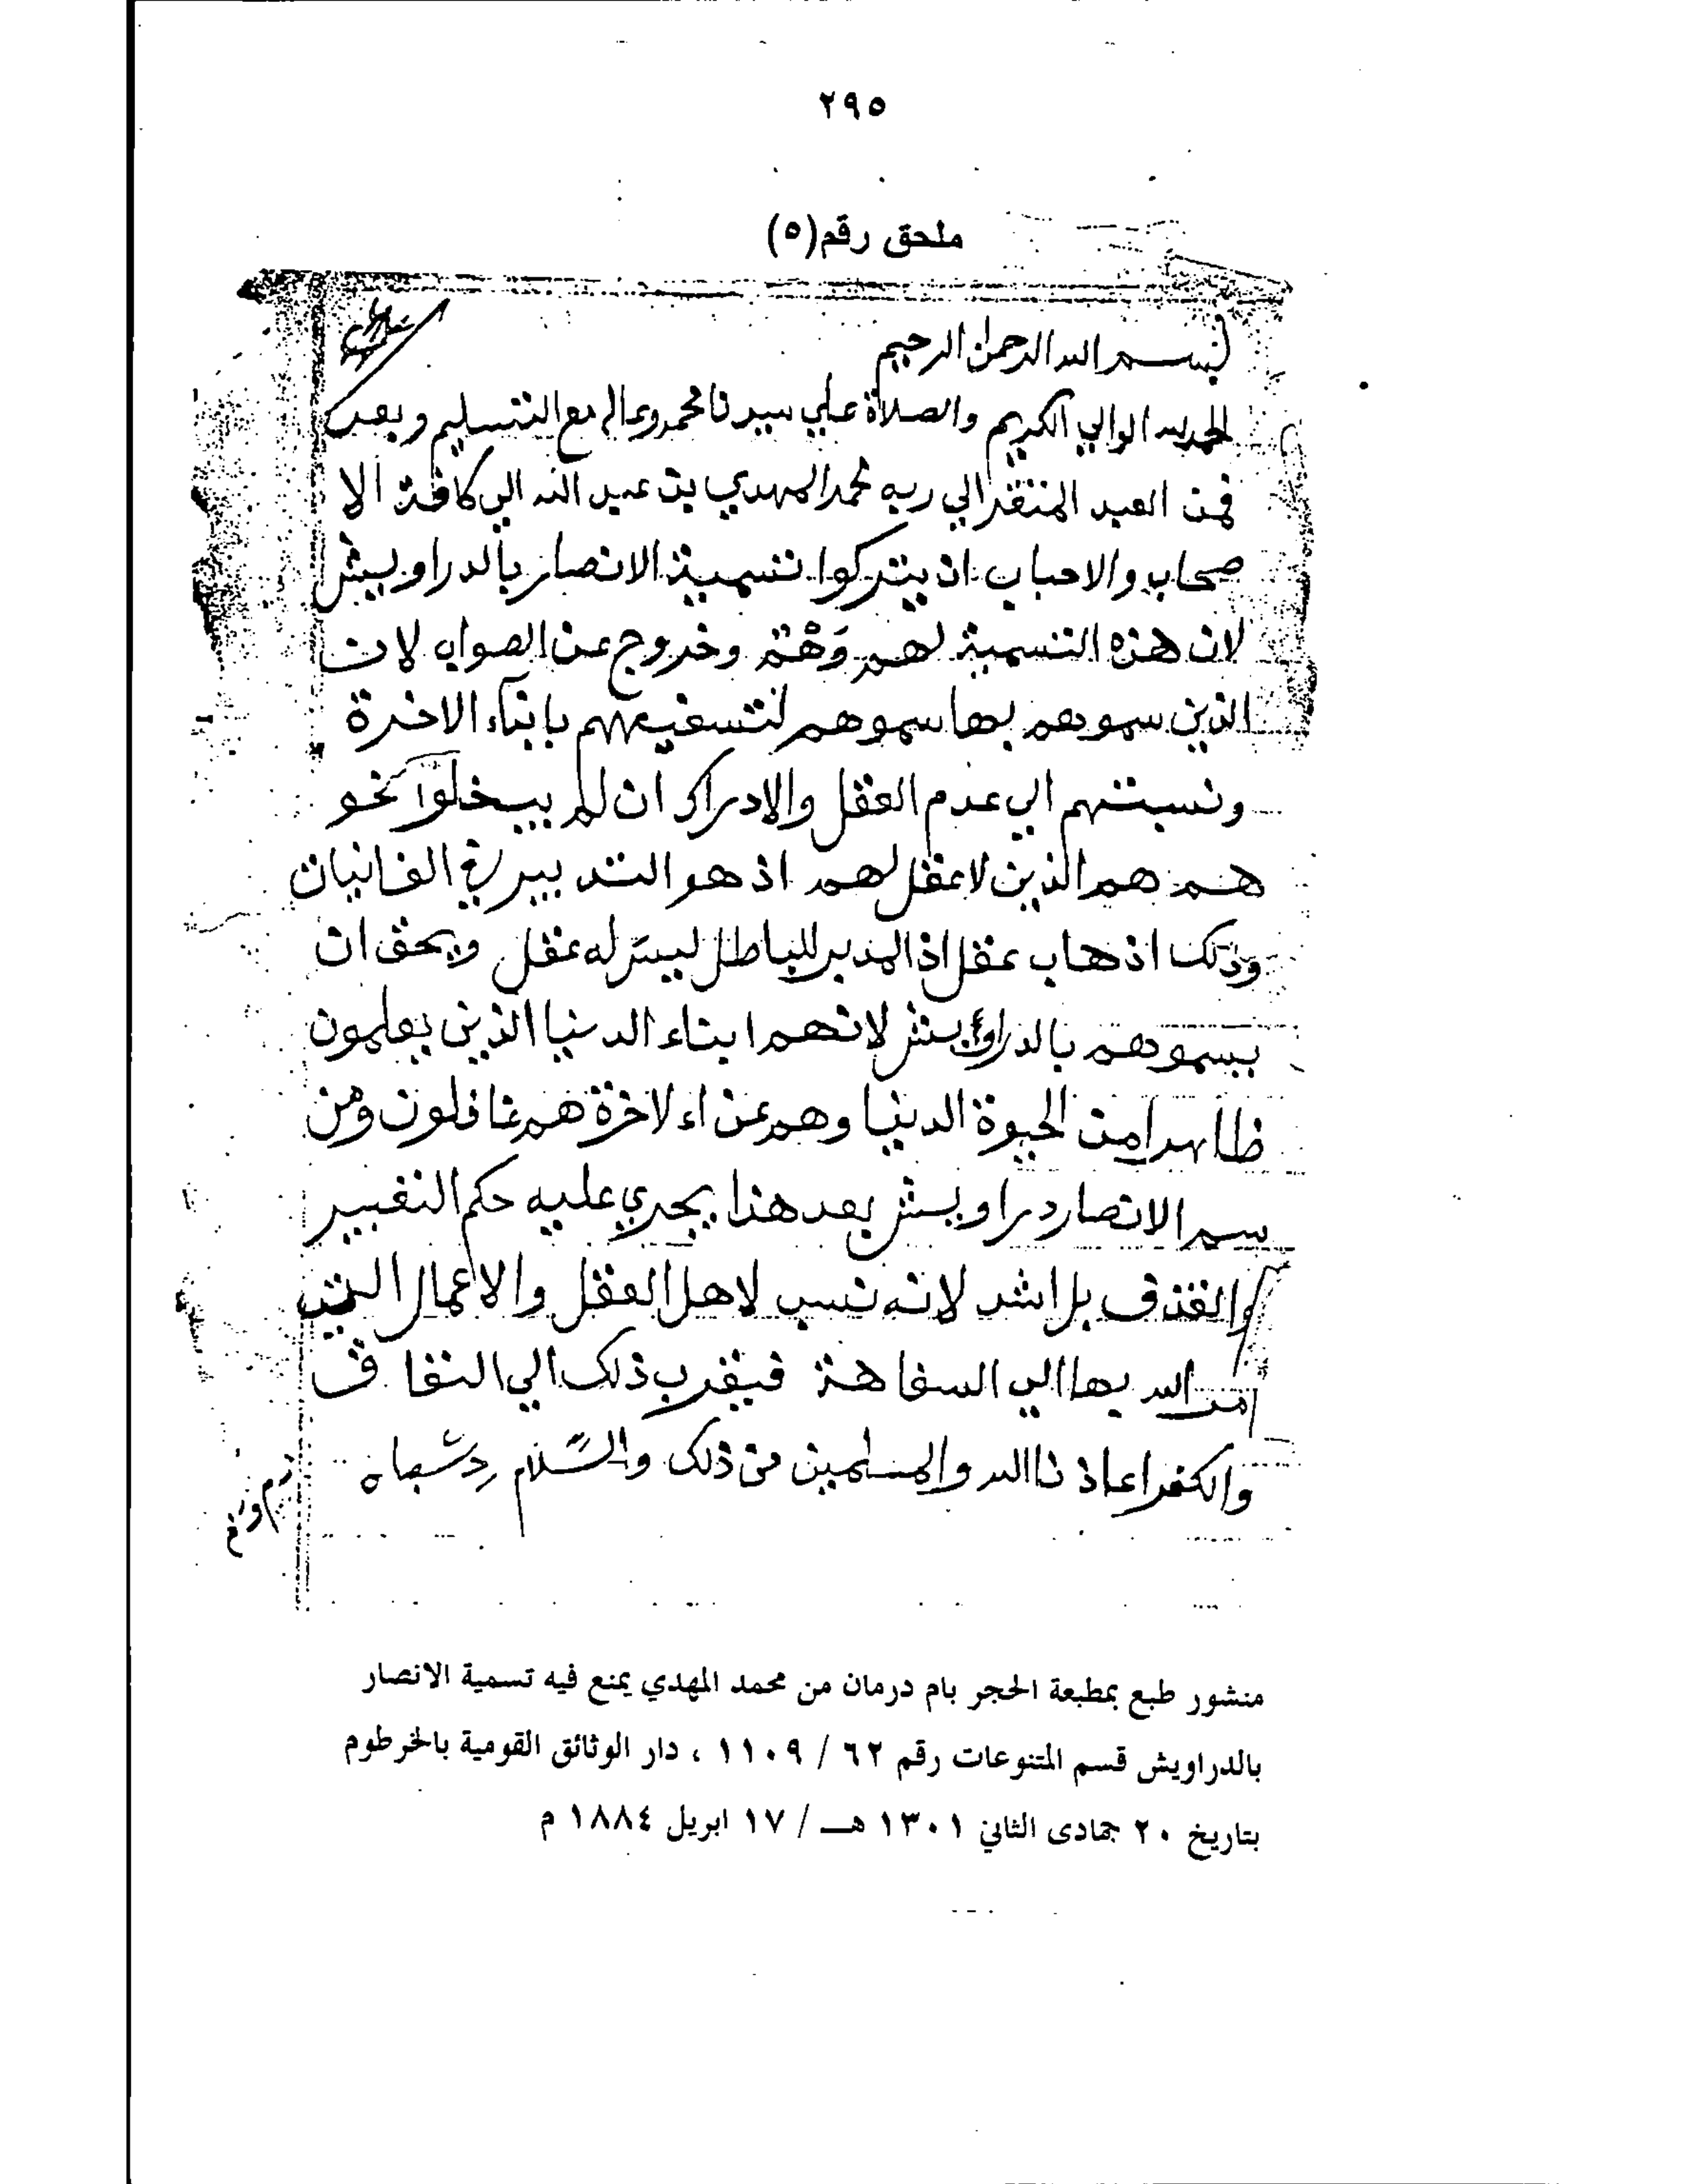 ٢٩٥
ملحق رقم (٥)
بسم الله الرحمن الرحيم
الحمد لله الوالي الكريم والصلاة علي سيدنا محمد وءاله مع التسليم وبعد
فمن العبد المفتقر الي ربه محمد المهدي بن عبد الله الي كافة الا
صحاب والاحباب ان يتركوا تسمية الانصار بالدراويش
لان هذه التسمية لهم وَهْم وخروج عن الصواب لان
الذين سموهم بها سموهم لتسفيههم بابناء الاخرة
ونسبتهم الي عدم العقل والادراك ان لم يدخلوا نحو
هم هم الذين لا عقل لهم اذ هو التدبير في الفانيات
وذلك اذهاب عقل اذ المدبر للباطل ليس له عقل ويحق ان
يسموهم بالدراويش لانهم ابناء الدنيا الذين يعلمون
ظاهرا من الحيوة الدنيا وهم عن اءلاخرة هم غافلون ومن
سم الانصار دراويش بعد هذا يجري عليه حكم
والقذف بل اشد لانه نسب لاهل العقل والاعمال التي
امر الله بها الي السفاهة فيقرب ذلك الي النفاق
والكفر اعاذنا الله والمسلمين من ذلك والسّلام
منشور طبع بمطبعة الحجر بام درمان من محمد المهدي يمنع فيه تسمية الانصار
بالدراويش قسم المتنوعات رقم ٦٢ / ١١٠٩ ، دار الوثائق القومية بالخرطوم
بتاريخ ٢٠ جمادى الثاني ١٣٠١ هـ / ١٧ ابريل ١٨٨٤ م